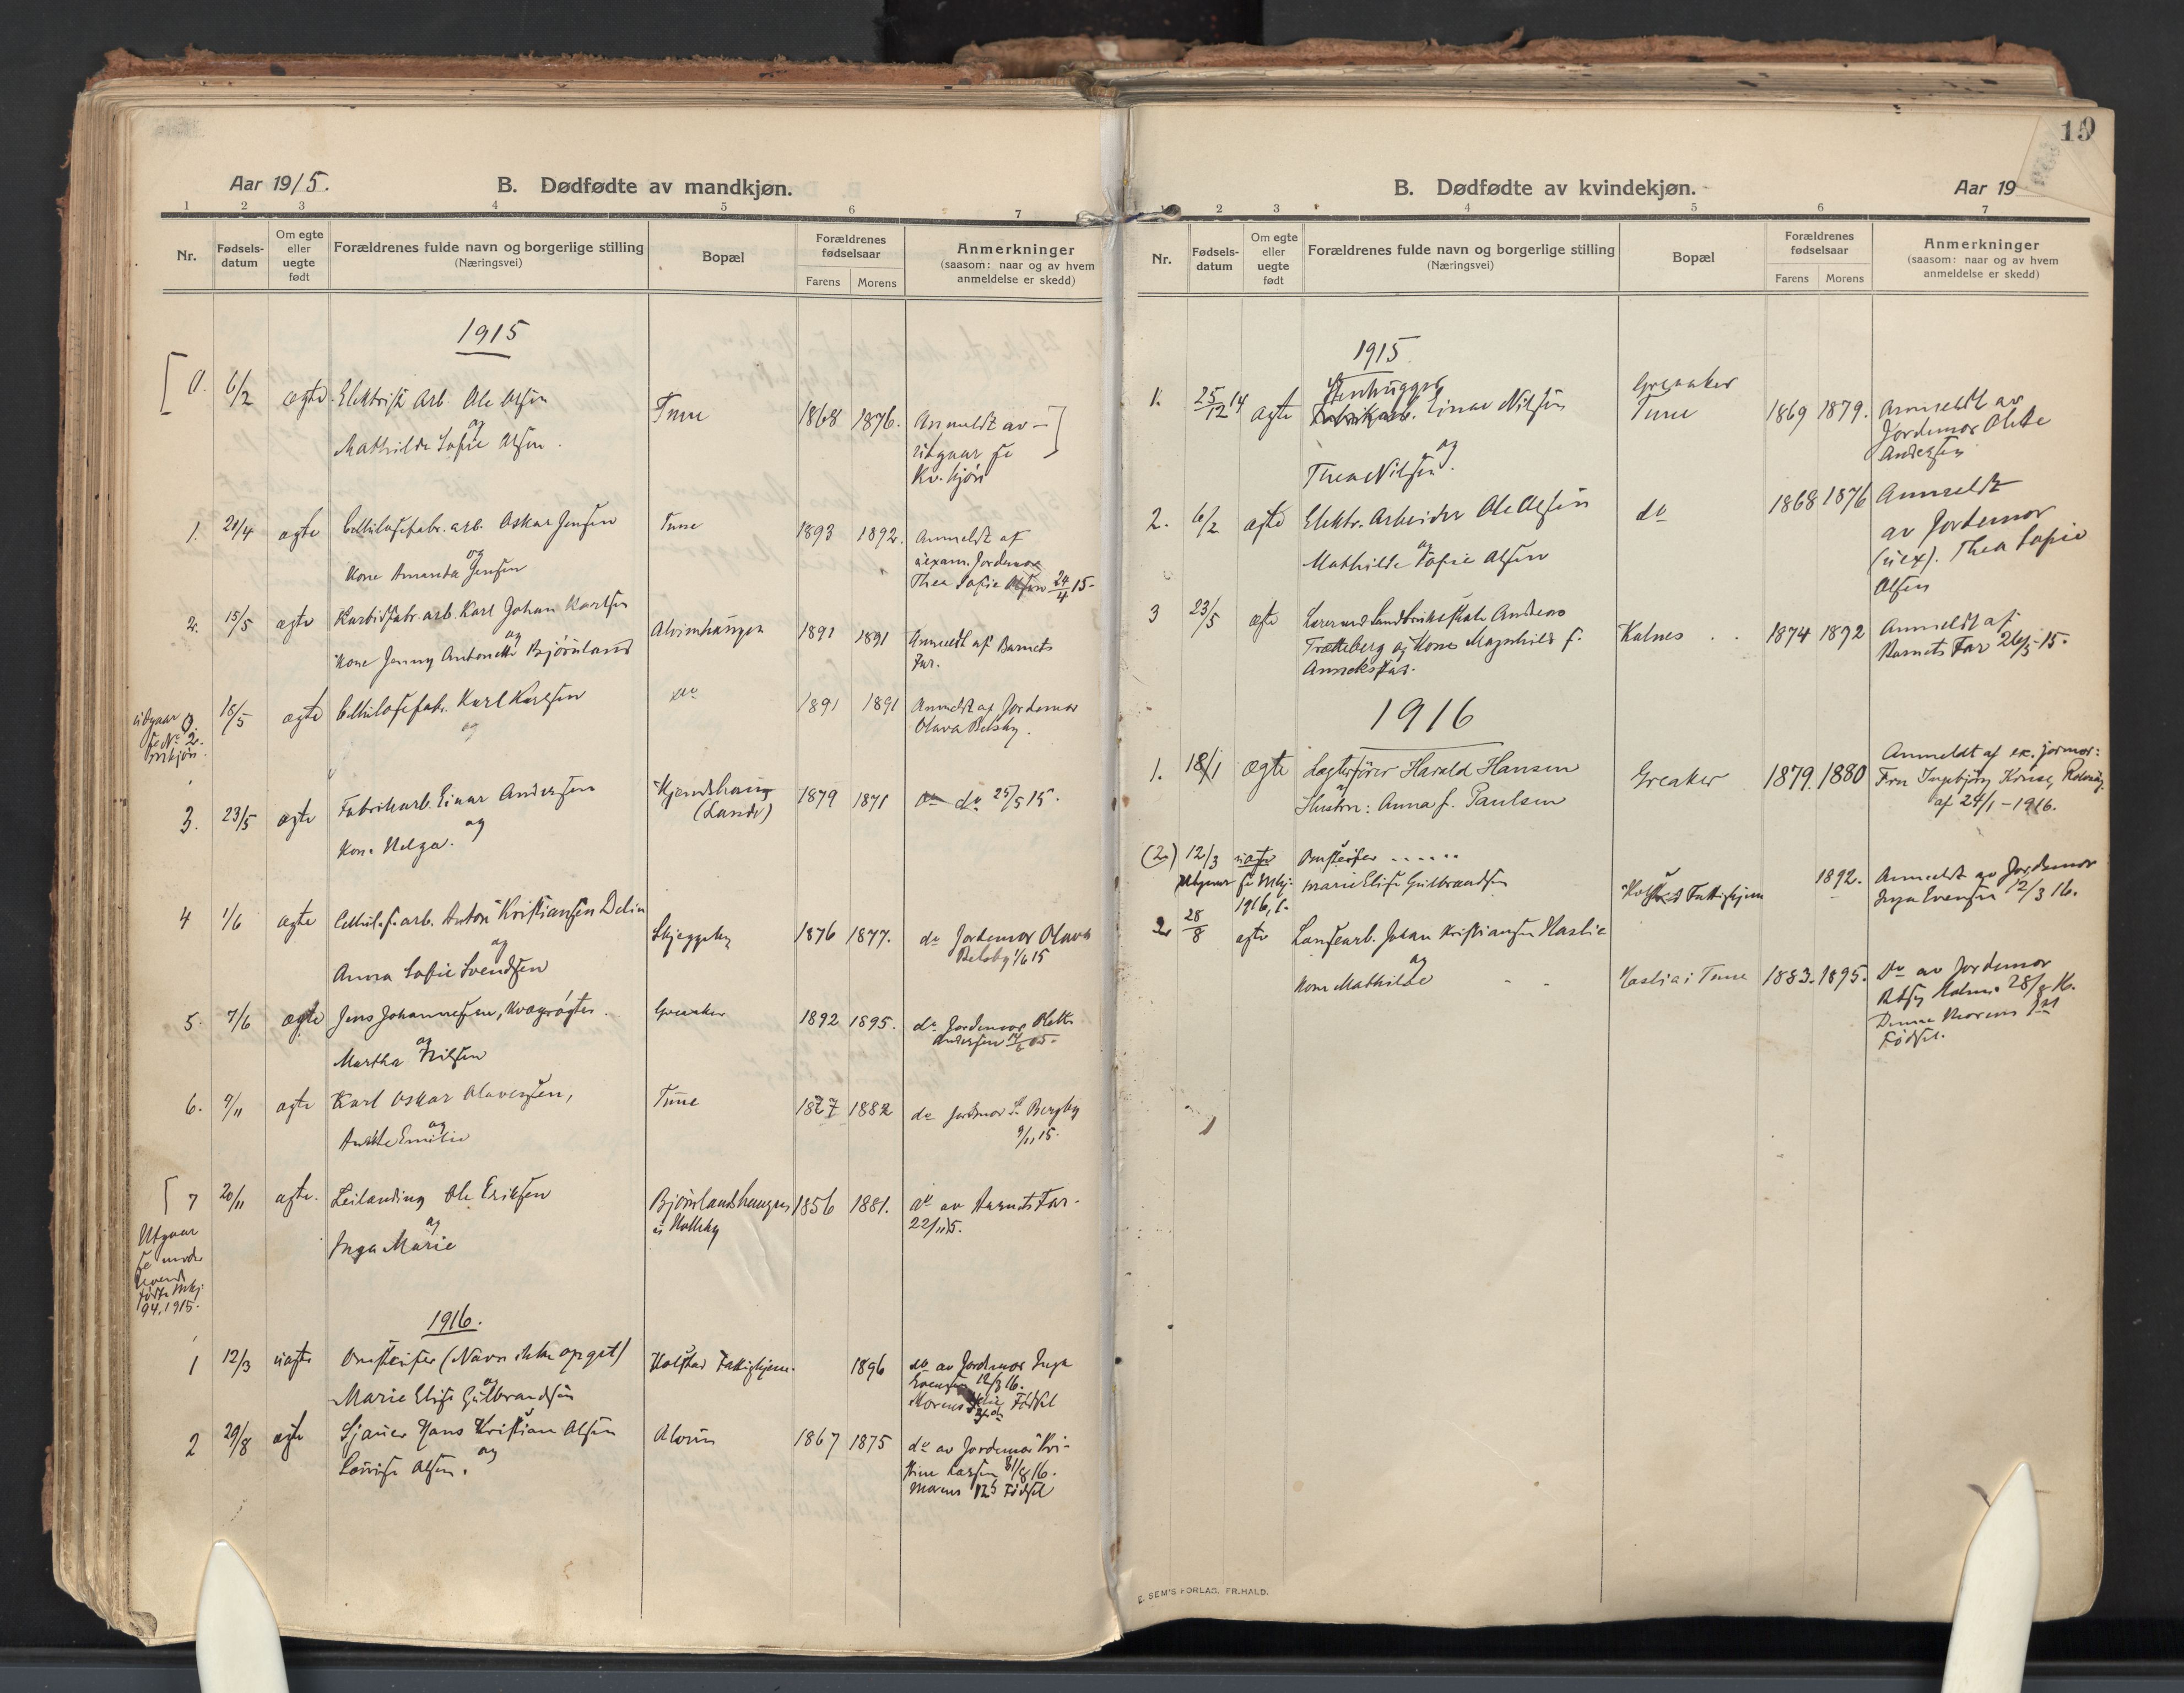 Aar 1915.
B. Dødfødte av mandkjøn.
1 2 3 4 5 6 7
Nr.
Fødsels-
datum
Om egte
eller
uegte
født
Forældrenes fulde navn og borgerlige stilling
(Næringsvei)
Bopæl
Forældrenes
fødselsaar
Farens Morens
Anmerkninger
(saasom: naar og av hvem
anmeldelse er skedd)
1915
0. 6/2 ægte Elektrisk Arb. Ole Olsen
og
Mathilde Sofie Olsen.
Tune 1868 1876. Anmeldt av —
utgaar se
Kv. kjøn
1. 21/4 ægte Cellulosefabr. arb. Oskar Jensen
og
Kone Amanda Jensen
Tune 1893 1892. Anmeldt af
uexam. Jordemor
Thea Sofie Olsen 24/4 15-
2. 15/5 ægte Karbidfabr. arb. Karl Johan Karlsen
og
Kone Jenny Antonette Bjørnland
Alvimhaugen 1891 1891 Anmeldt af Barnets
Far.
utgaar
se No 2.
mkjøn.
0. 18/5 ægte Cellulosefabr. Karl Karlsen
og
do 1891 1891 Anmeldt af Jordemor
Olava Belsby.
3. 23/5 ægte Fabrikarb. Einar Andersen
og
Kone Helga.
(Lande) 1879 1871 do 25/5 15.
4 1/6 ægte Cellul. f. arb. Anton Kristiansen Delin
og
Anna Sofie Svendsen
Skjeggeby 1876 1877. do Jordemor Olava
Belsby 1/6 15
5. 7/6 ægte Jens Johannesen, Kvægrøgter.
og
Martha Nilsen
Greaaker 1892 1895. do Jordemor Olette
Andersen
6. 9/11 ægte Karl Oskar Olavessen,
og
Anette Emilie
Tune 1877 1882 do Jordmor S. Bergby
9/11 15.
7 20/11 ægte. Leilanding Ole Eriksen
og
Inga Marie
Bjørnlandshaugen
u Halleby
1856 1881. do av Barnets Far.
22/11 15.
Utgaar
se under
levend
fødte Mkj.
94, 1915.
1916.
1 12/3 uægte (Navn ikke opgit)
og
Marie Elise Gulbrandsen
Kolstad Fattighjem. 1896 do av Jordemor Inga
Evensen 12/3 16.
Morens Fødsel
2 29/8 ægte Sjauer Hans Kristian Olsen
og
Lovise Olsen.
Alvim 1867 1875 do av Jordemor Kri-
stine Larsen 31/8 16.
Morens 12te Fødsel
B. Dødfødte av kvindekjøn.
Aar 19
10
1 2 3 4 5 6 7
Nr.
Fødsels-
datum
Om egte
eller
uegte
født
Forældrenes fulde navn og borgerlige stilling
(Næringsvei)
Bopæl
Forældrenes
fødselsaar
Farens Morens
Anmerkninger
(saasom: naar og av hvem
anmeldelse er skedd)
1915
1. 25/12 14 ægte Stenhugger
Fabrikarb. Einar Nilsen
og
Thea Nilsen.
Greaaker
Tune 1869 1879. Anmeldt av
Jordemor Olette
Andersen
2. 6/2 ægte Elektr. Arbeider Ole Olsen
og
Mathilde Sofie Olsen
do 1868 1876 Anmeldt
av Jordemor
(uex). Thea Sofie
Olsen
3 23/5 ægte Lærer ved Landbruksskole Andreas
Trætteberg og Kone Magnhild f.
Kalnes 1874 1892 Anmeldt af
Barnets Far 26/5-15.
1916
1. 18/1 ægte Lægterfører Harald Hansen
og
Hustru: Anna f. Paulsen
Greaker 1879. 1880 Anmeldt af ex. jormor:
Fru Ingebjørg
af 24/1-1916.
(2) 12/3 uægte
Utgaar se Mkj.
1916, 1.
Marie Elise Gulbrandsen
Kolstad Fattighjem 1892. Anmeldt av Jordemor
Inga Evensen 12/3 16.
2. 28/8 ægte Johan Kristiansen Haslie
og
Kone Mathilde
Haslia i Tune 1883. 1895. Do av Jordemor
28/8 16.
Denne Morens 1ste
Fødsel.
E. SEM'S FORLAG, FR.HALD.